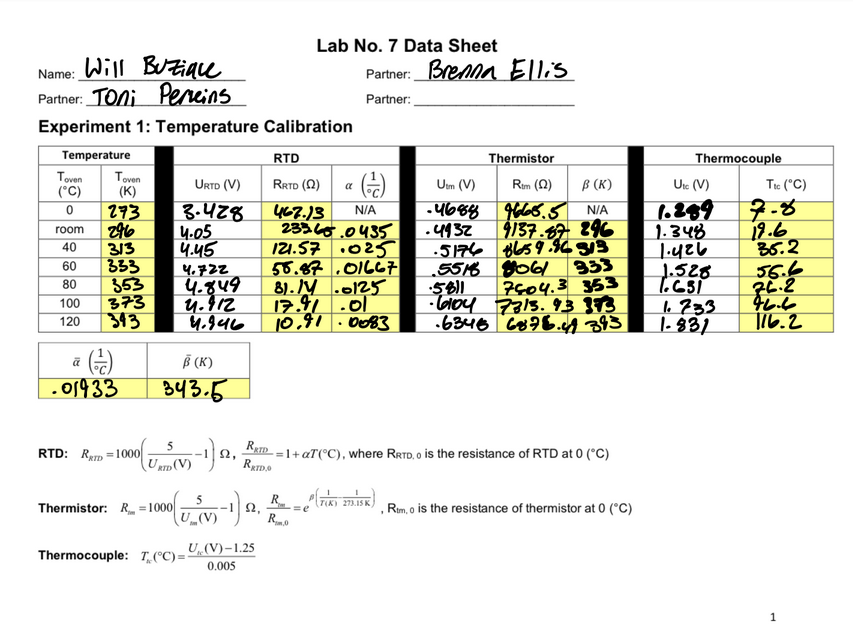 Lab No. 7 Data Sheet
Name: Will Buziace Partner: Brenna Ellis
Partner: Toni Perkins Partner:
Experiment 1: Temperature Calibration
Temperature RTD Thermistor Thermocouple
Toven (°C) Toven (K) URTD (V) RRTD (Ω) α (1/°C) Utm (V) Rtm (Ω) β (K) Utc (V) Ttc (°C)
0 273 3.428 467.13 N/A .4688 9665.5 N/A 1.289 7.8
room 296 4.05 .0435 .4932 9137.87 296 1.348 19.6
40 313 4.45 121.57 .025 .5176 8659.96 313 1.426 35.2
60 333 4.722 58.87 .01667 .5518 8061 333 1.528 55.6
80 353 4.849 31.14 .0125 .5811 7604.3 353 1.631 76.2
100 373 4.912 17.91 .01 .6104 373 1.733 96.6
120 393 4.946 10.91 .0083 .6348 393 1.831 116.2
ᾱ (1/°C) β̄ (K)
.01933 343.5
RTD: RRTD = 1000(5/URTD(V) − 1) Ω, RRTD/RRTD,0 = 1 + αT(°C), where RRTD, 0 is the resistance of RTD at 0 (°C)
Thermistor: Rtm = 1000(5/Utm(V) − 1) Ω, Rtm/Rtm,0 = e^β(1/T(K) − 1/273.15 K), Rtm, 0 is the resistance of thermistor at 0 (°C)
Thermocouple: Ttc(°C) = Utc(V) − 1.25 / 0.005
1